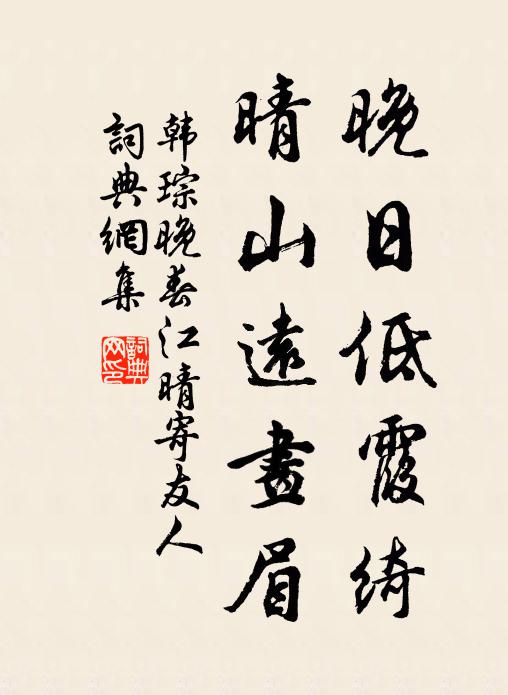 晚日低霞綺
晴山遠畫眉
韓琮晚春江晴寄友人
詞典網集
詞典網印